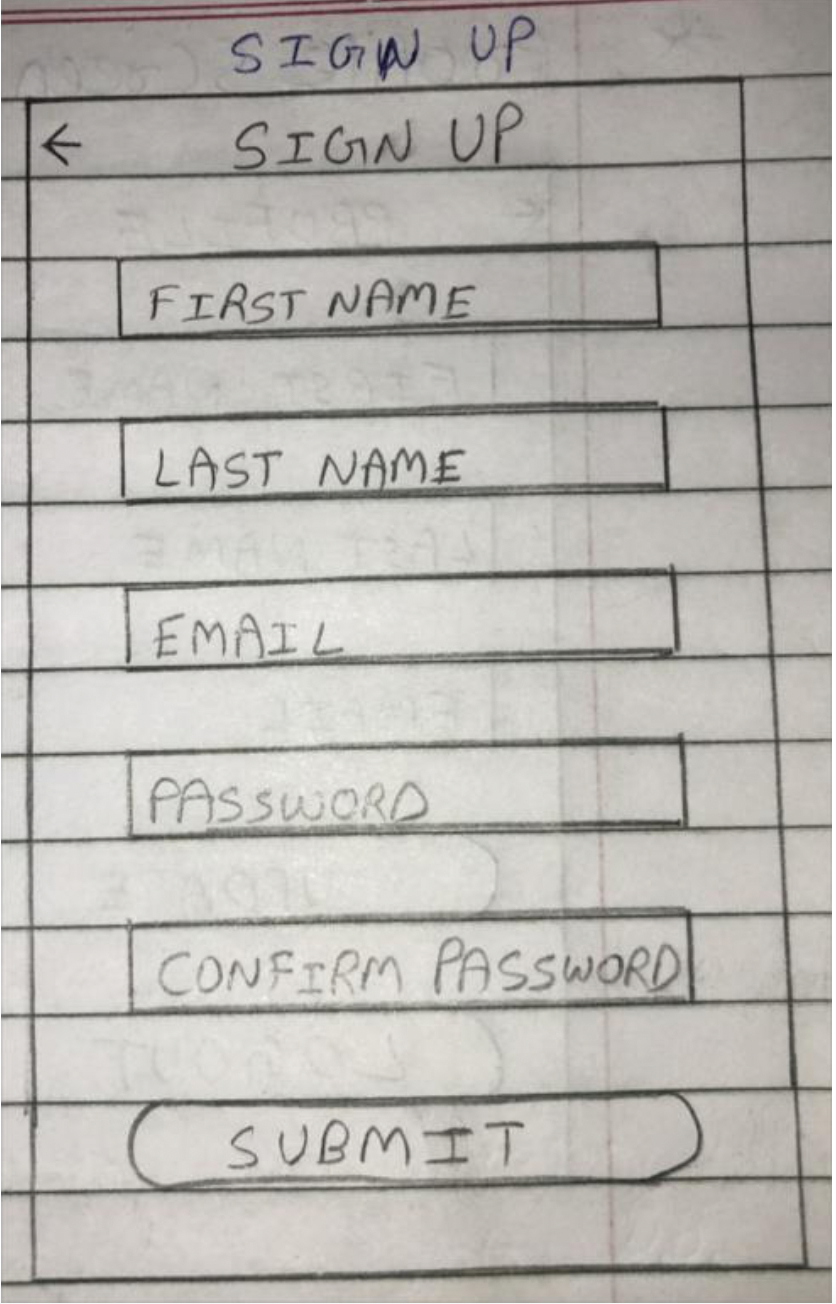 SIGN UP
← SIGN UP
FIRST NAME
LAST NAME
EMAIL
PASSWORD
CONFIRM PASSWORD
SUBMIT